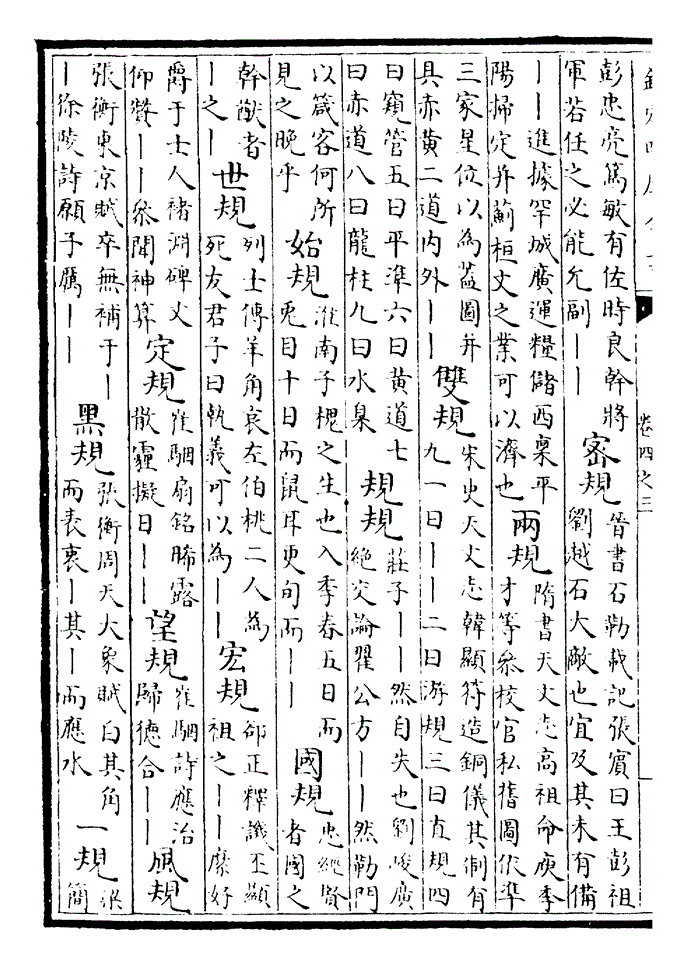 欽定四庫全書
卷四之三
彭忠亮篤敏有佐時良幹將
軍若任之必能允副丨丨
密規
晉書石勒載記張賓曰王彭祖
劉越石大敵也宜及其未有備
丨丨進據罕城廣運糧儲西稟平
陽掃定并薊桓文之業可以濟也
兩規
隋書天文志高祖命庾季
才等參校官私舊圖依準
三家星位以為蓋圖并
具赤黃二道内外丨丨
雙規
宋史天文志韓顯符造銅儀其制有
九一曰丨丨二曰游規三曰直規四
曰窺管五曰平準六曰黃道七
曰赤道八曰龍柱九曰水臬
規規
莊子丨丨然自失也劉峻廣
絶交論翟公方丨丨然勒門
以箴客何所
見之晚乎
始規
淮南子槐之生也入季春五日而
兎目十日而鼠耳更旬而丨丨
國規
忠經賢
者國之
幹猷者
丨之丨
世規
列士傳羊角哀左伯桃二人為
死友君子曰執義可以為丨丨
宏規
郤正釋譏丕顯
祖之丨丨縻好
爵于士人褚淵碑文
仰贊丨丨參聞神算
定規
崔駰扇銘睎露
散霾擬日丨丨
望規
崔駰詩應治
歸德合丨丨
風規
張衡東京賦卒無補于丨
丨徐陵詩願子厲丨丨
黑規
張衡周天大象賦白其角
而表衷丨其丨而應水
一規
梁
簡